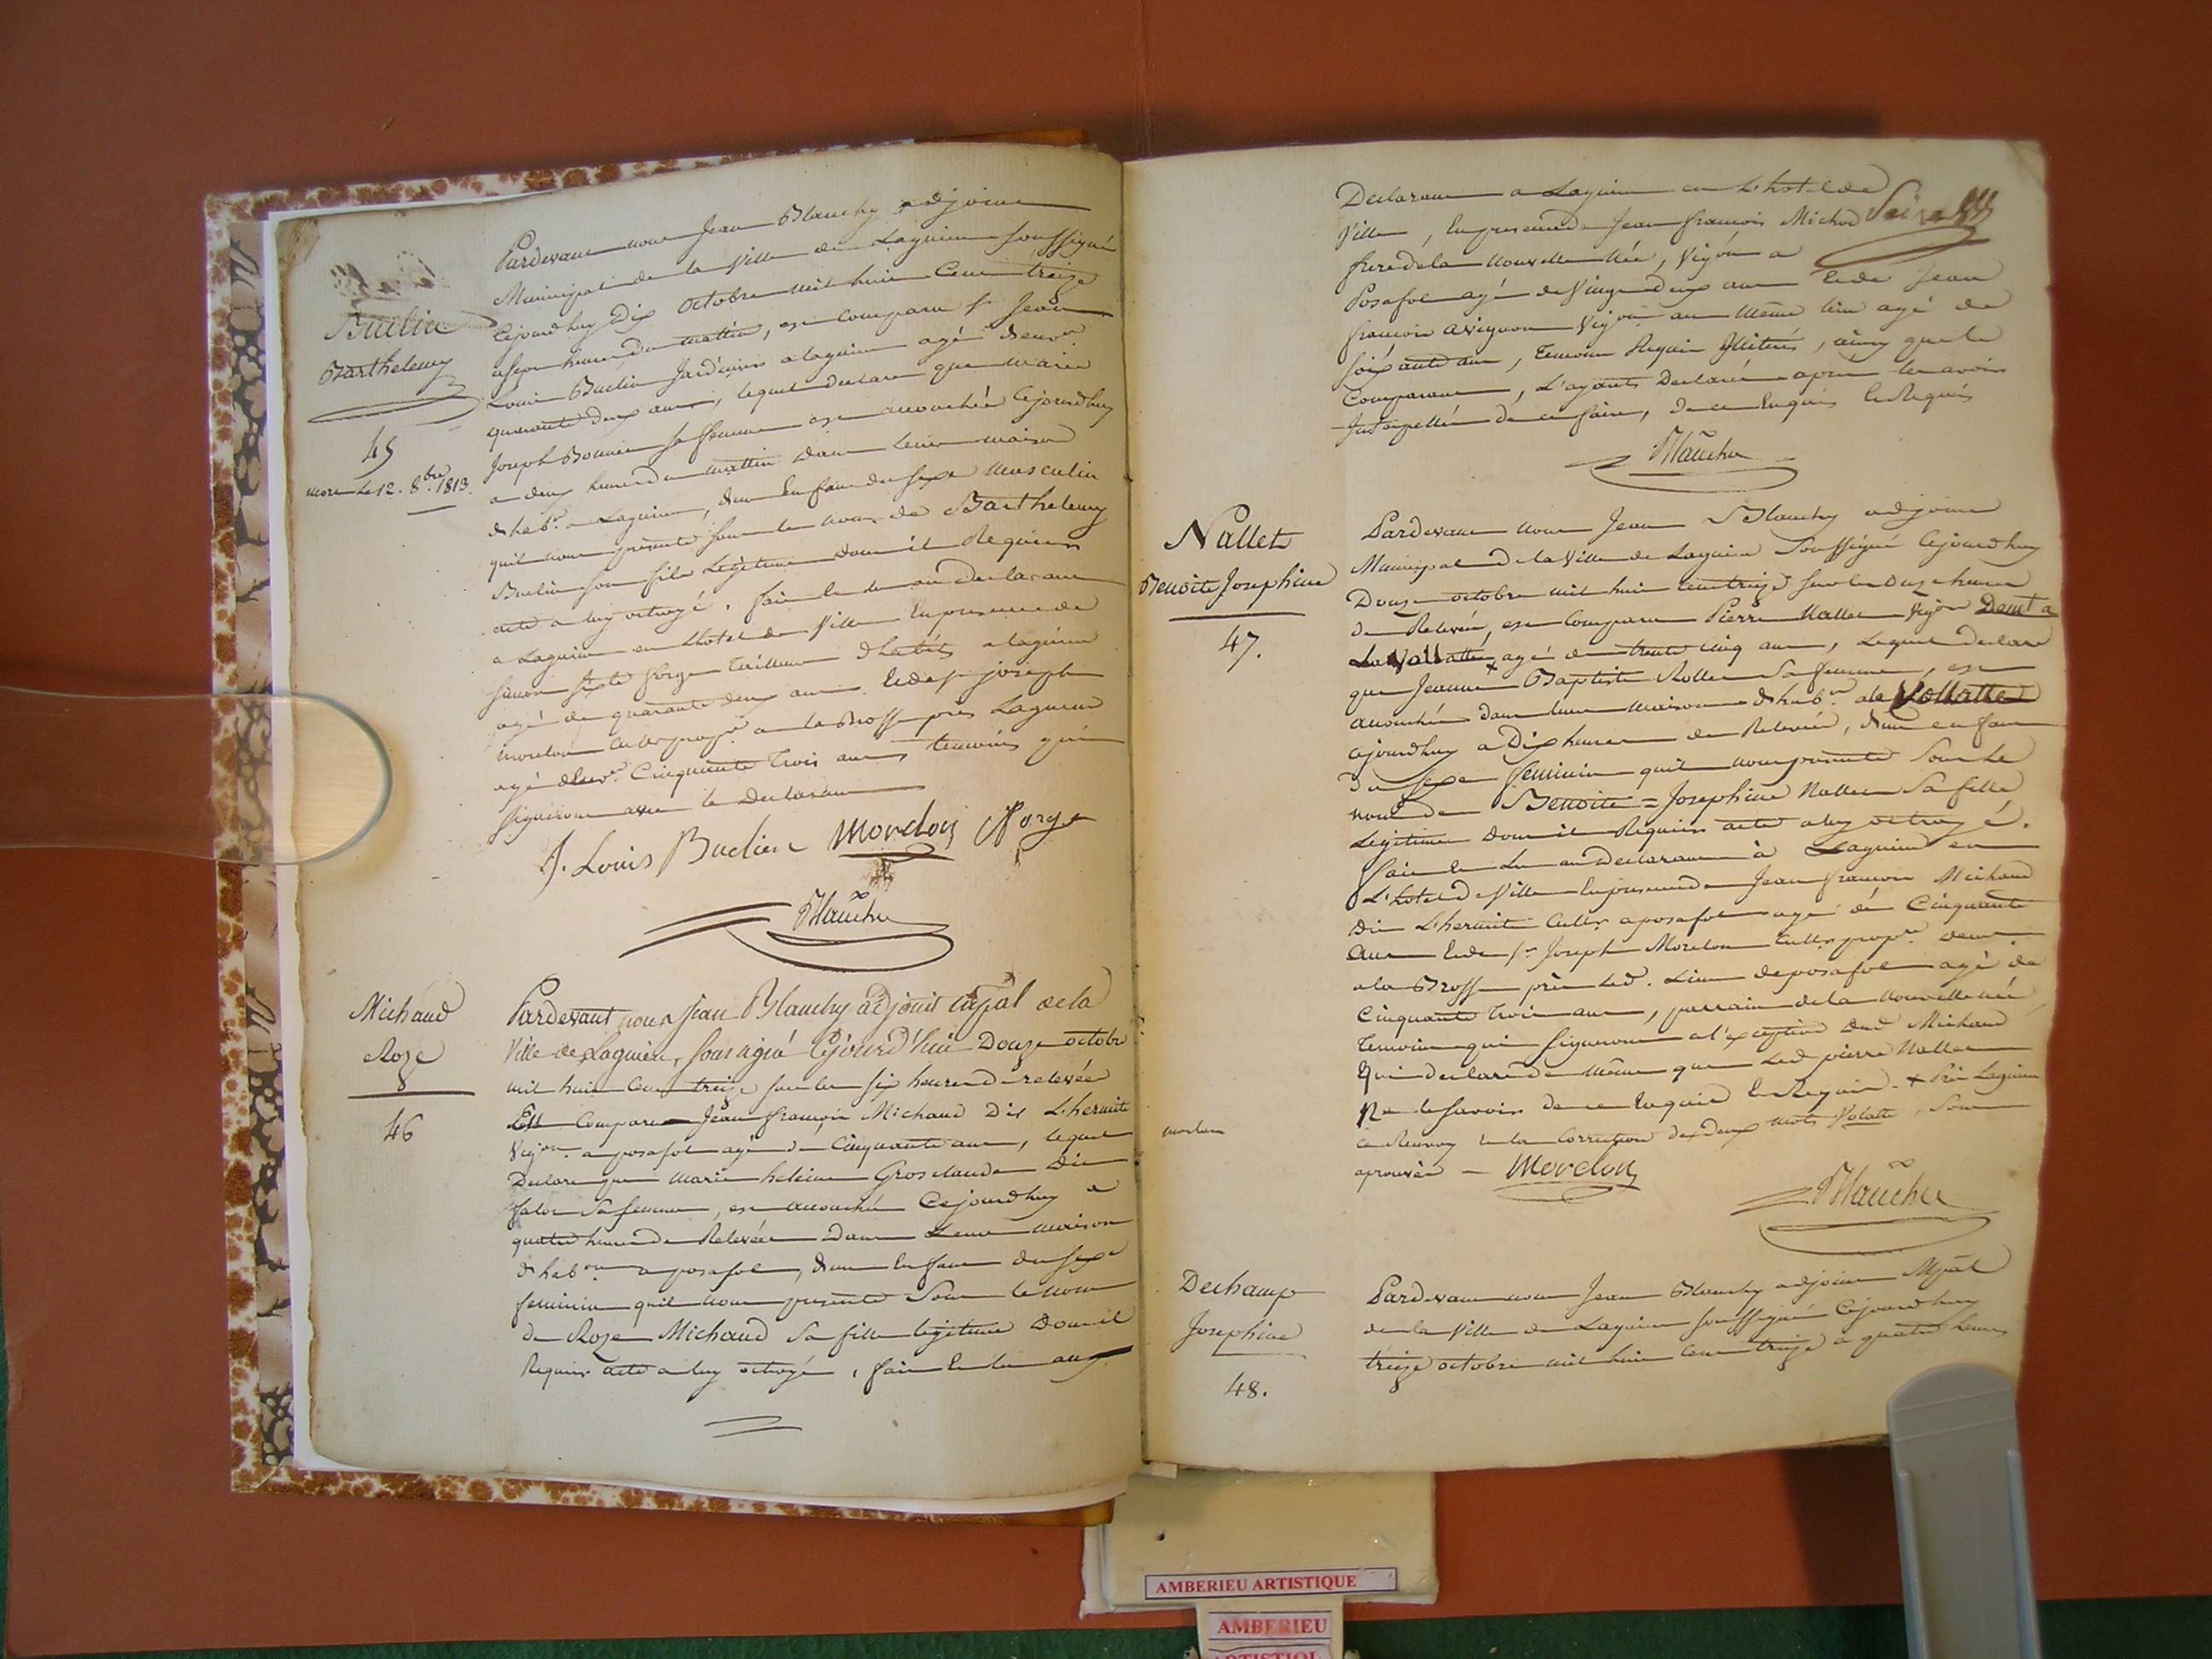 Buclin
Barthelemy
45
mort le 12. 8bre 1813.
Pardevant nous Jean Blanchy adjoint
Municipal de la Ville de Lagnieu soussigné
Cejourdhuy Dix Octobre mil huit Cent treize
a sept heures du mattin, est comparu sr Jean
Louis Buclin Jardinier a lagnieu agé denvn
quarante deux ans, lequel declare que marie
Joseph Bonnier sa femme est accouchée Cejourdhuy
a deux heures du mattin dans leur maison
dhabon a Lagnieu, dun Enfant du sexe masculin
quil nous presente sous le nom de Barthelemy
Buclin son fils Legitime dont il Requiert
acte a luy octroyé. fait lu au declarant
a Lagnieu en Lhotel de Ville En presence de
Simon forge tailleur dhabits a lagnieu
agé de quarante deux ans Et de sr joseph
morelon cultr propre a la Brosse pres Lagnieu
agé denvn Cinquante trois ans temoins qui
signeront avec le declarant
J. Louis Buclin Morelon Forge
Blanchy
Michaud
Roze
46
Pardevant nous Jean Blanchy adjoint mpal de la
Ville de Lagnieu, soussigné Cejourd'hui Douze octobre
mil huit Cent treize sur les six heures de relevée
Est Comparu Jean françois Michaud Dit L'hermite
Vigon a posafol agé de Cinquante ans, lequel
Declare que marie helene Grosclaude Dit
falor Sa femme, est accouchée Cejourdhuy a
quatre heures de Relevée Dans Leur maison
dhabon a posafol, dun Enfant du sexe
feminin quil nous presente Sous le nom
de Roze Michaud Sa fille legitime Dont il
Requier acte a luy octroyé, fait Lu au
Declarant a Lagnieu en L'hotel de
Ville, En presence de Jean françois Michod
frere de la nouvelle Née, Vigon a
Posafol agé de Vingt deux ans Et de Jean
françois avignon Vigon au même lieu agé de
soixante ans, temoins Requis Illiterés, ainsy que le
Comparant, L'ayants Declaré après les avoir
Interpellés de ce faire, de ce Enquis Et Requis
Blanchy
Nallet
Benoite Josephine
47.
Pardevant nous Jean Blanchy adjoint
Municipal de la Ville de Lagnieu Soussigné Cejourdhuy
Douze octobre mil huit Cent treize sur les onze heures
de Relevée, est Comparu Pierre Nallet Vigon Demt a
La Vollatte + agé de trente Cinq ans, Lequel declare
que Jeanne Baptiste Rollet Sa femme, est
accouchée dans leur maison dhabon a la Vollatte
cejourdhuy a Dix heures de Relevée, dun enfant
du sexe feminin quil nous presente Sous Le
nom de Benoite = Josephine Nallet Sa fille
Legitime Dont il Requiert acte a luy octroyé.
fait et Lu au Declarant à Lagnieu en
L'hotel de Ville En presence de Jean françois Michaud
Dit L'hermite Cultr a posafol agé de Cinquante
Ans Et de sr Joseph Morelon Cultr propre demt
a la Brosse près Led. Lieu de posafol agé de
Cinquante trois ans, parrain de la nouvelle née
Temoins qui signeront a l'exception dud Michaud
Qui declare de même que Led pierre Nallet
Ne le savoir de ce Enquis Et Requis. + Près Lagnieu
ce Renvoy et la Correction des deux mots Volatte, Sont
aprouvés — Morelon
Blanchy
Dechamp
Josephine
48.
Pardevant nous Jean Blanchy adjoint Mpal
de la Ville de Lagnieu soussigné Cejourdhuy
treize octobre mil huit Cent treize a quatre heures
AMBERIEU ARTISTIQUE
AMBERIEU